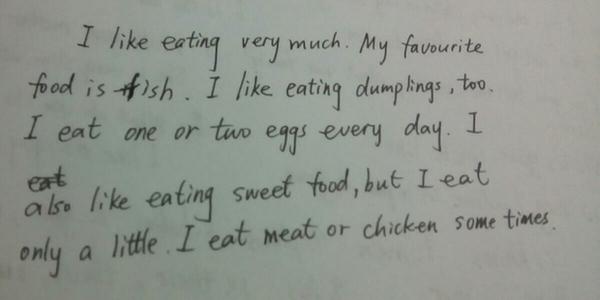 I like eating very much. My favourite
food is fish. I like eating dumplings, too.
I eat one or two eggs every day. I
eat
also like eating sweet food, but I eat
only a little. I eat meat or chicken some times.